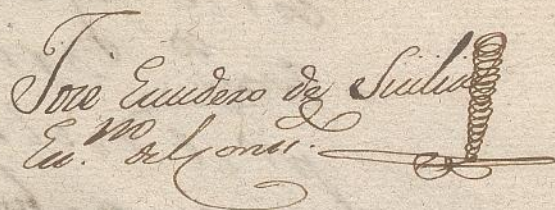 Jose Escudero de Sicilia
Es.no de Cons.